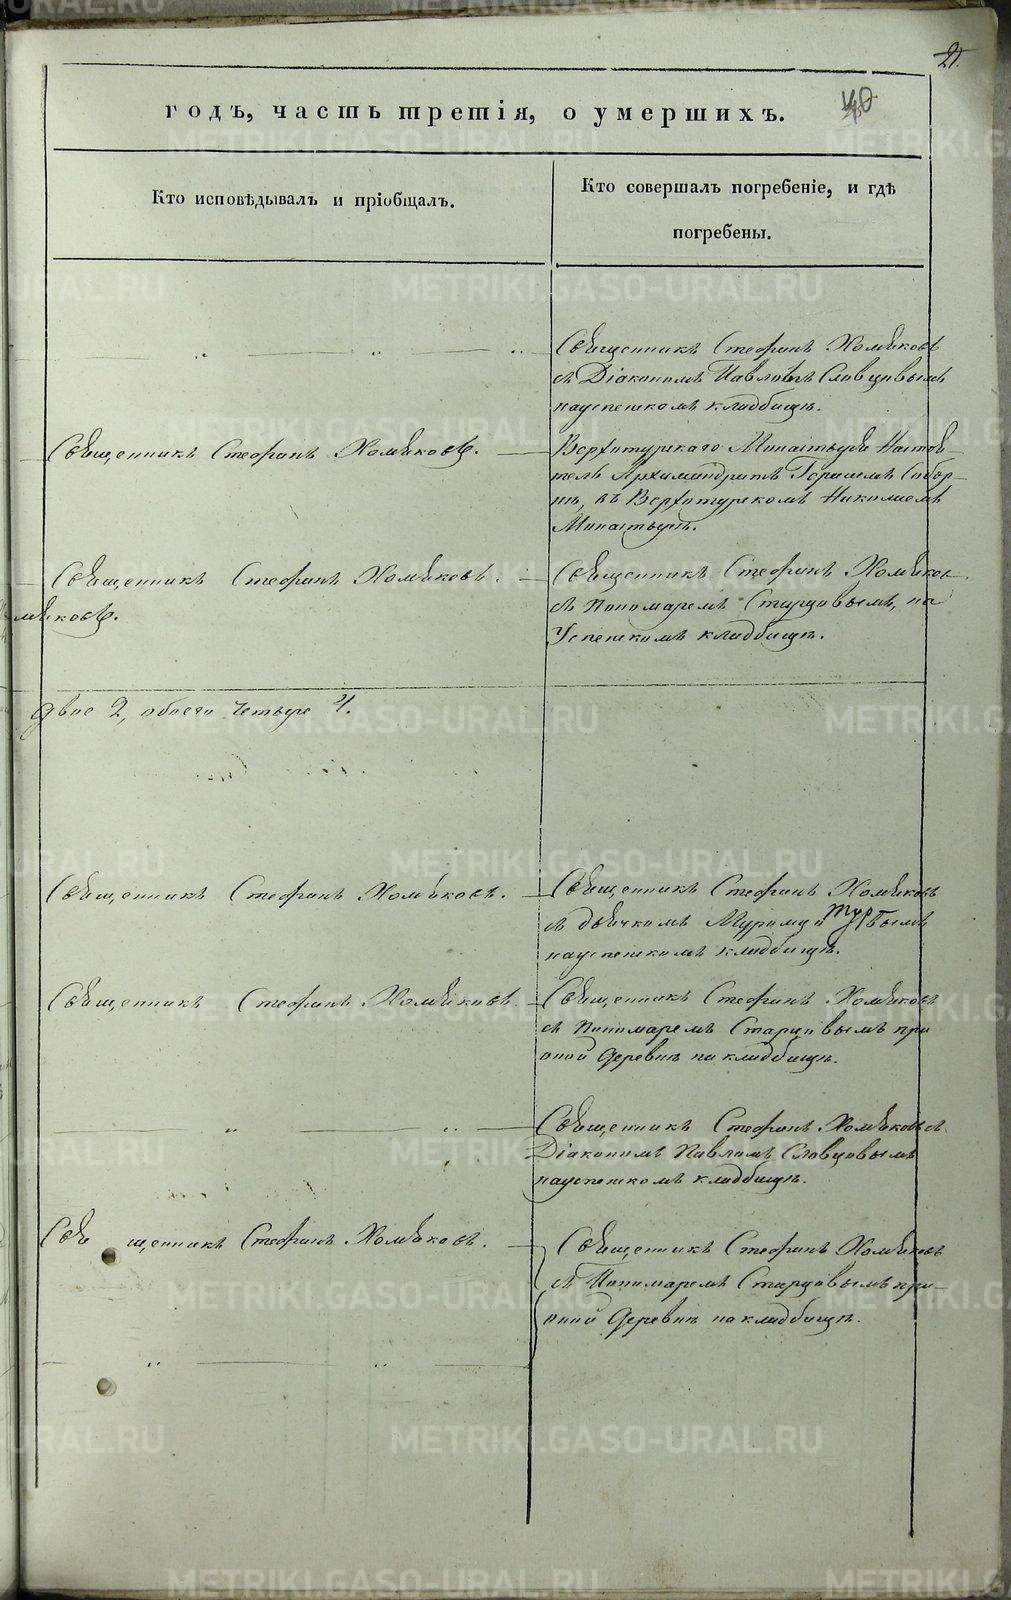 21.
40
годъ, часть третія, о умершихъ.
Кто исповѣдывалъ и пріобщалъ.
Кто совершалъ погребеніе, и гдѣ
погребены.
Священникъ Стефанъ Хомяковъ
съ Діакономъ Павломъ Словцовымъ
на успенскомъ кладбищѣ.
Священникъ Стефанъ Хомяковъ.
Верхотурскаго Монастыря Настоя-
тель Архимандритъ
въ Верхотурскомъ Николаев
Монастырѣ.
Священникъ Стефанъ Хомяковъ.
мяковъ.
Священникъ Стефанъ Хомяков
съ Пономаремъ Старцовымъ, на
Успенскомъ кладбищѣ.
двое 2, обоего четыре 4.
Священникъ Стефанъ Хомяковъ.
Священникъ Стефанъ Хомяковъ
съ дьячкомъ
на успенскомъ кладбищѣ.
Священникъ Стефанъ Хомяковъ.
Священникъ Стефанъ Хомяковъ
съ Пономаремъ Старцовымъ при
оной деревнѣ на кладбищѣ.
Священникъ Стефанъ Хомяковъ съ
Діакономъ Павломъ Словцовымъ
на успенскомъ кладбищѣ.
Священникъ Стефанъ Хомяковъ.
Священникъ Стефанъ Хомяковъ
съ Пономаремъ Старцовымъ при
оной деревнѣ на кладбищѣ.
METRIKI.GASO-URAL.RU